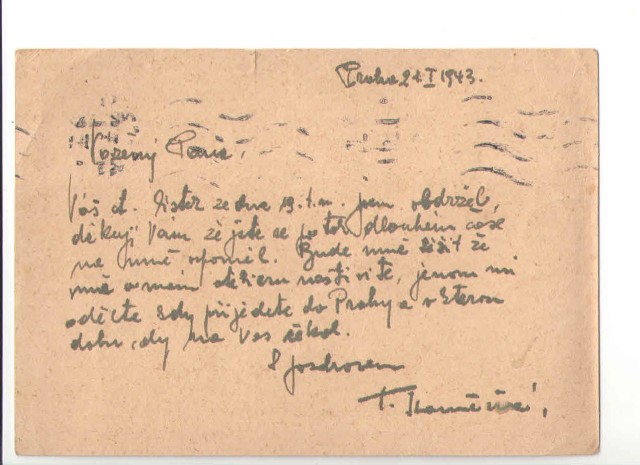 Praha 21.I 1943.
Vážený Pane,
Váš ct. lístek ze dne 19.t.m. jsem obdržel,
děkuji Vám že jste se po tak dlouhém čase
na mně vpoměl. Bude mně těšit že
mně v mém atelieru navštívíte, jenom mi
sdělte kdy přijedete do Prahy a v kterou
dobu, aby na Vás čekal.
S pozdravem
F.